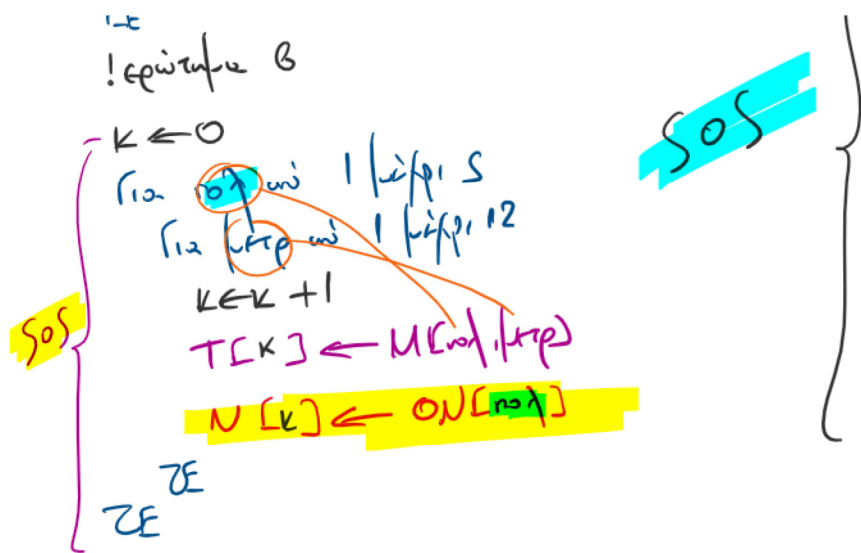 ΤΕ
!ερώτημα β
κ ← 0
SOS
Για πολ από 1 μέχρι 5
Για μετρ από 1 μέχρι 12
κ ← κ + 1
SOS
Τ[κ] ← Μ[πολ, μετρ]
Ν[κ] ← ΟΝ[πολ]
ΤΕ
ΤΕ